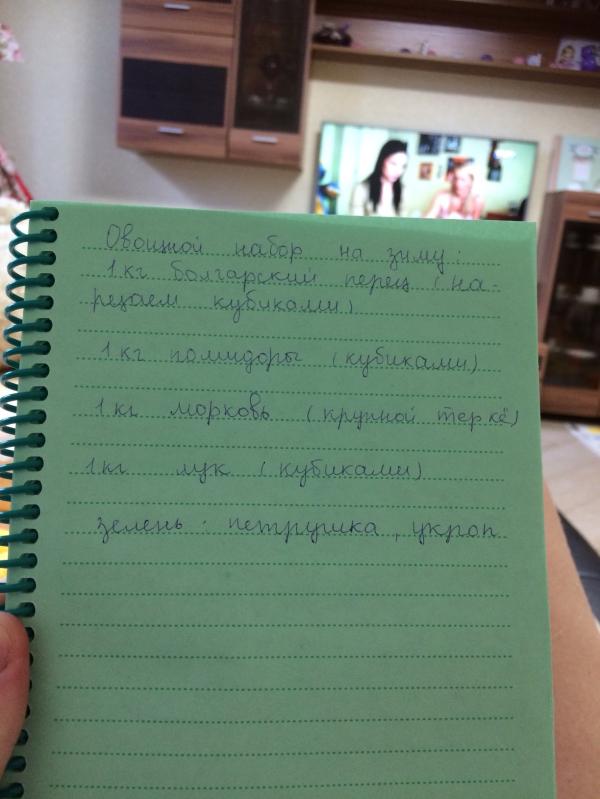 Овощной набор на зиму:
1 кг болгарский перец (на-
рецаем кубиками)
1 кг помидоры (кубиками)
1 кг морковь (крупной терке)
1 кг лук (кубиками)
зелень: петрушка, укроп